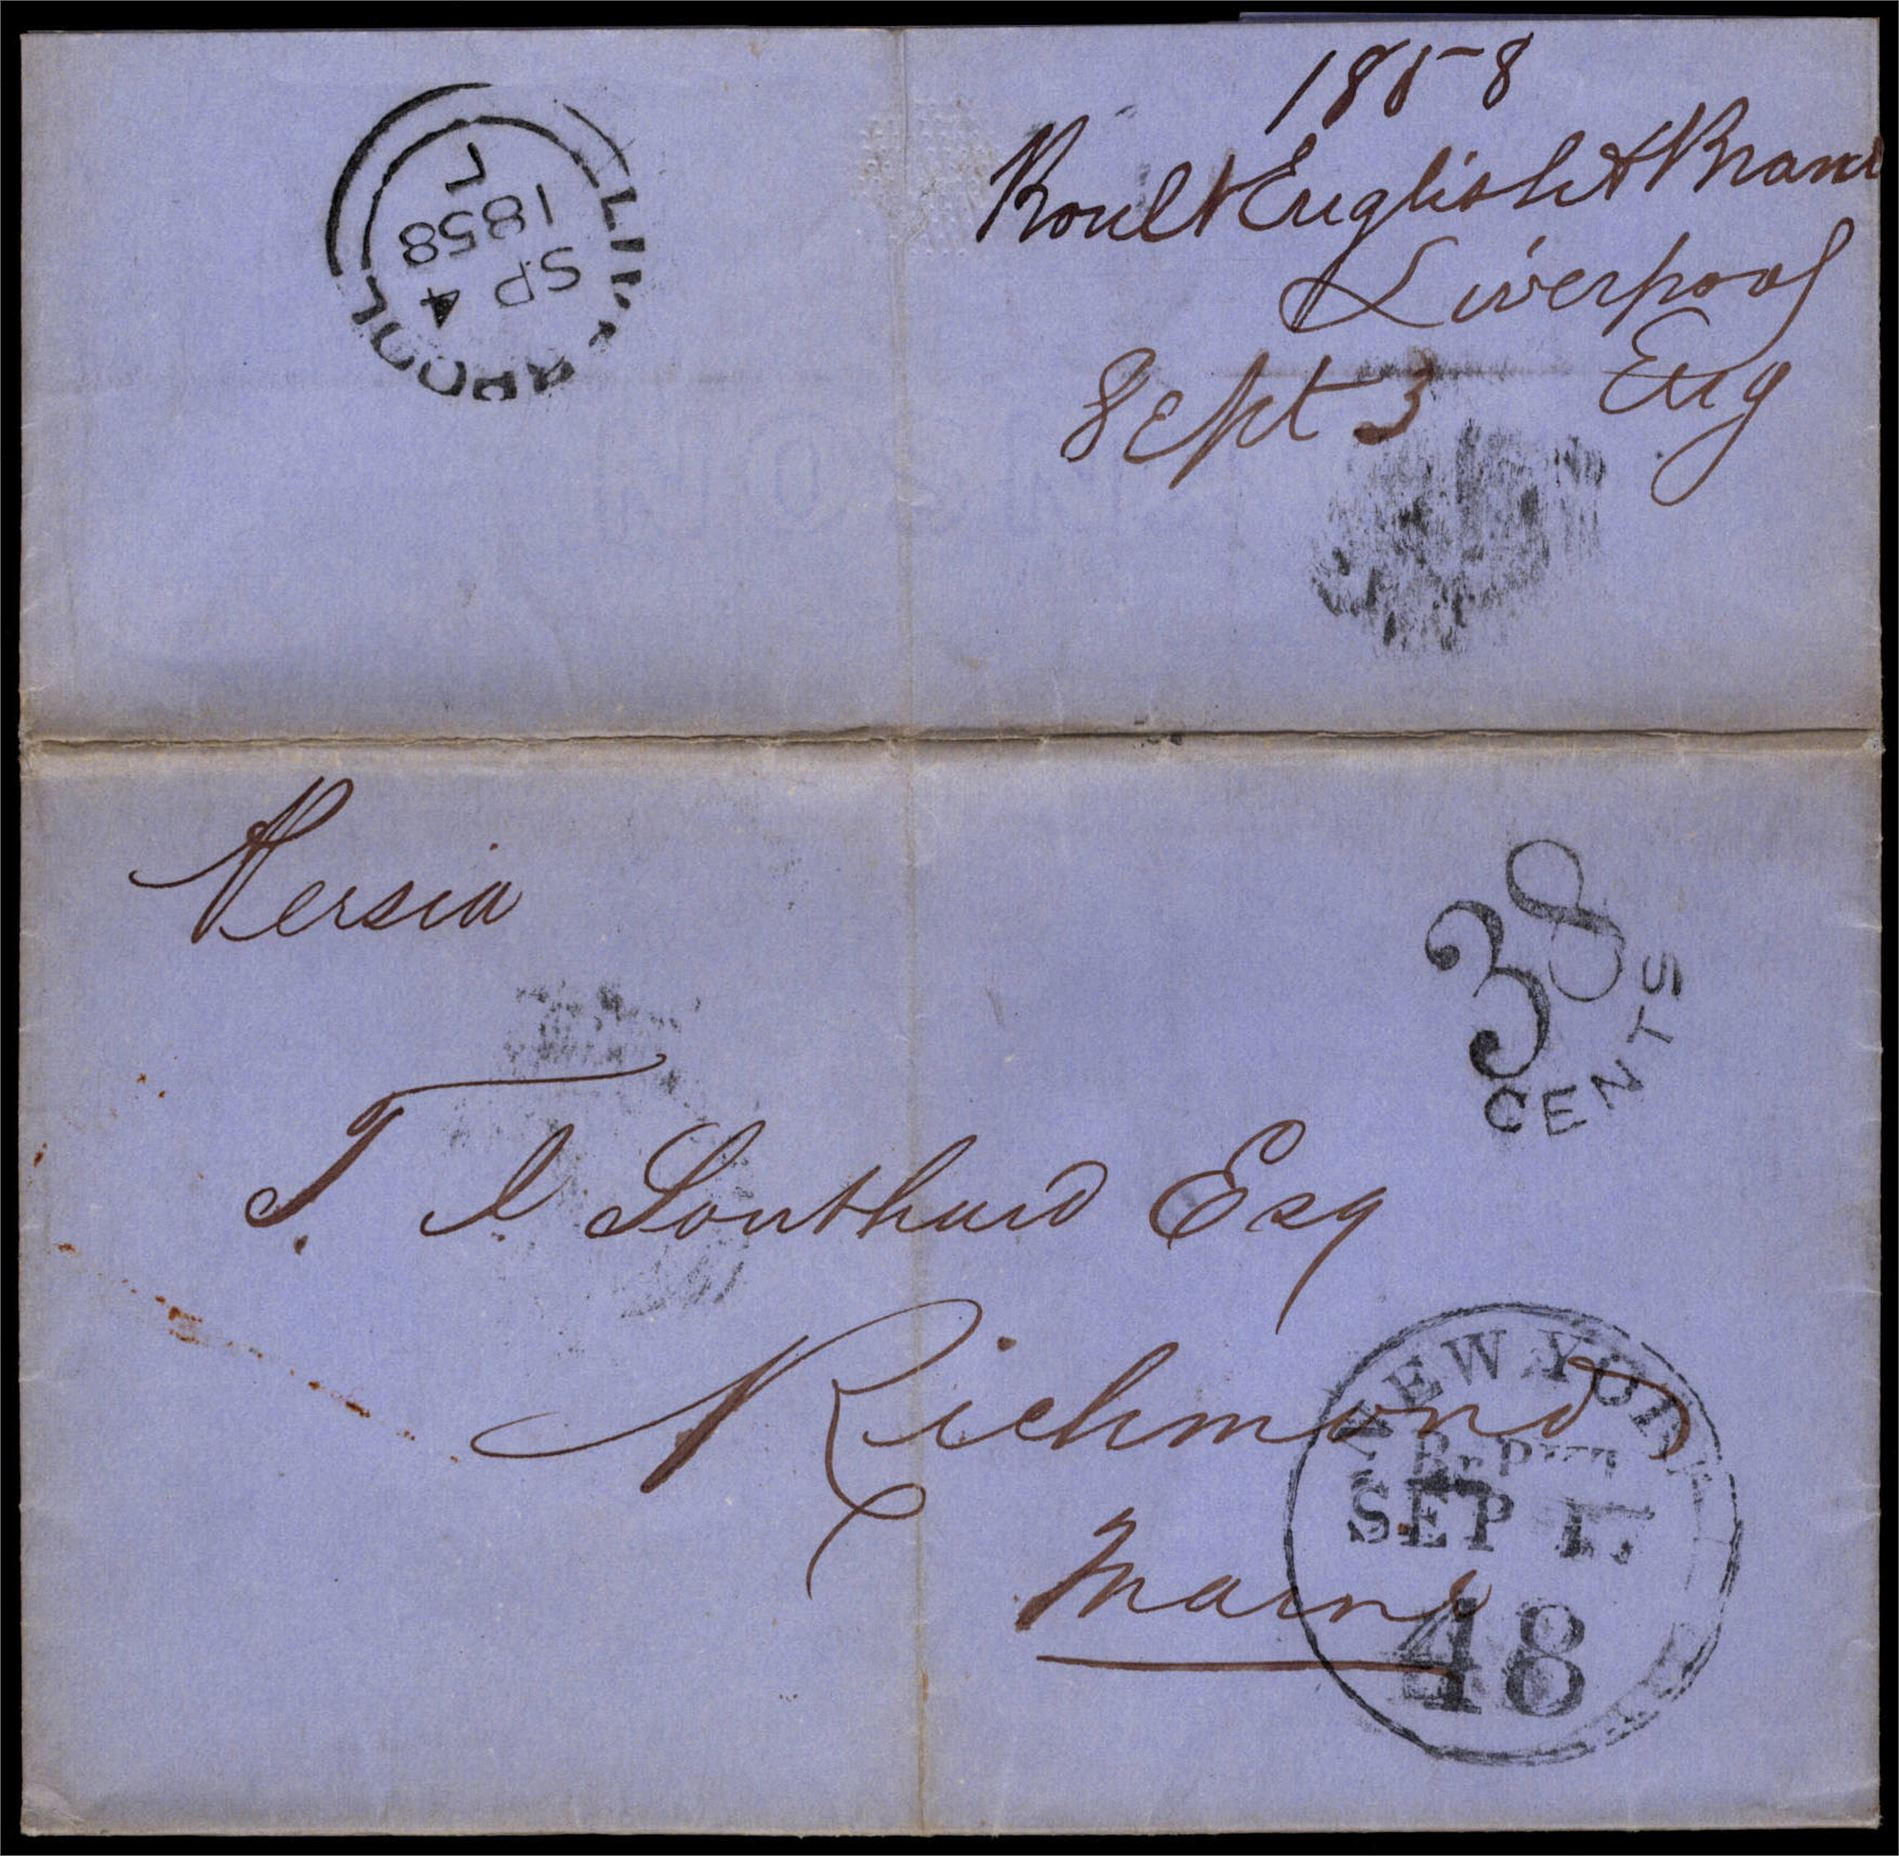 1858
Boult English & Brand
Liverpool
Eng
Sept 3
LIVERPOOL
SP 4
1858
L
Persia
38
CENTS
T. J. Southard Esq
Richmond
Maine
NEW YORK
SEP
48